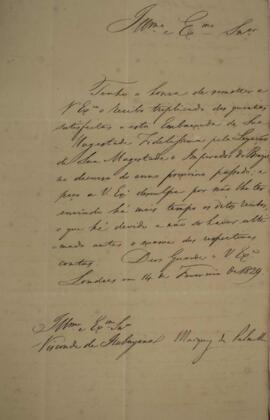 Illmo e Exmo Snr
Tenho a honra de remetter a
V Exa o recibo triplicado das quantias
satisfeitas a esta Embaixada de Sua
Magestade Fidelissima pela Legação
de Sua Magestade o Imperador do Brazil
no decurso do anno proximo passado, e
peço a V Exa desculpa por não lhe ter
enviado há mais tempo os ditos recibos,
o que hé devido a não se haver ulti-
mado antes o exame das respectivas
contas. Deos Guarde a V Exa
Londres em 14 de Fevereiro de 1829
Illmo e Exmo Snr
Visconde de Itabayana Marquez de Palmella